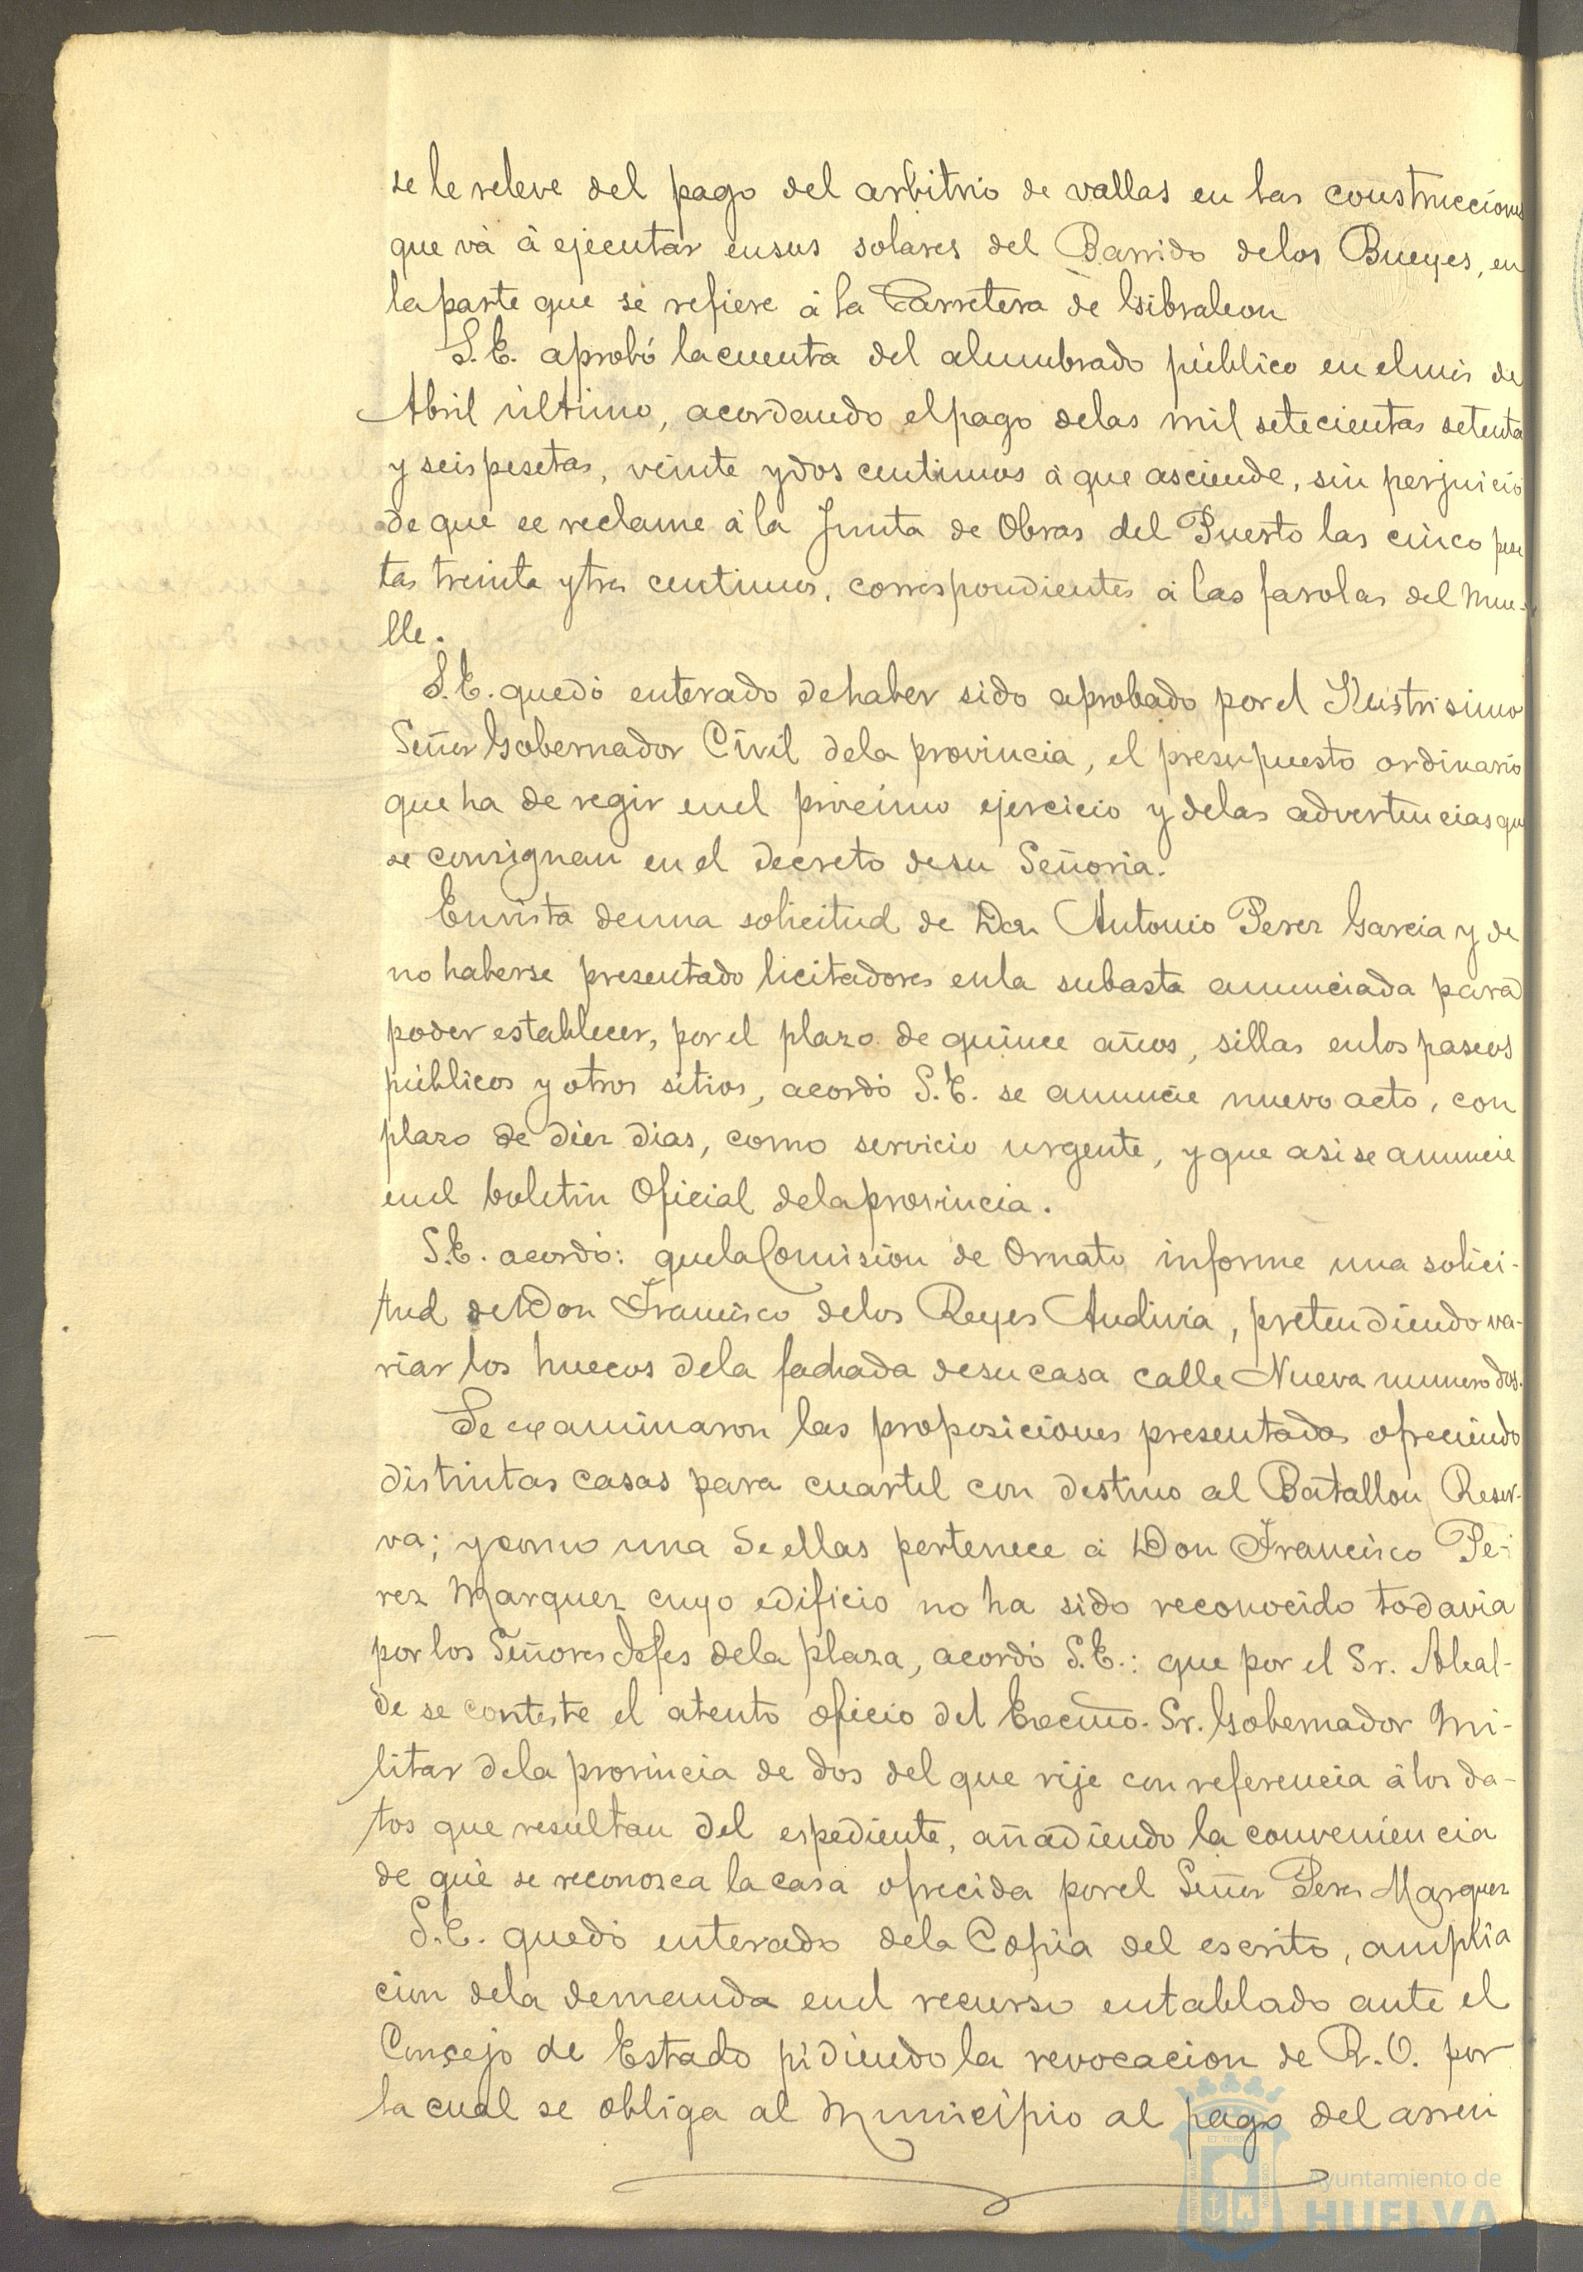 se le releve del pago del arbitrio de vallas en las construcciones
que vá á ejecutar en sus solares del Barrido de los Bueyes, en
la parte que se refiere á la Carretera de Gibraleon
S.E. aprobó la cuenta del alumbrado público en el mes de
Abril último, acordando el pago de las mil setecientas setenta
y seis pesetas, veinte y dos centimos á que asciende, sin perjuicio
de que se reclame á la Junta de Obras del Puerto las cinco pese
tas treinta y tres centimos, correspondientes á las farolas del Mue-
lle.
S.E. quedó enterado de haber sido aprobado por el Ilustrisimo
Señor Gobernador Civil de la provincia, el presupuesto ordinario
que ha de regir en el prócimo ejercicio y de las advertencias que
se consignan en el decreto de su Señoria.
En vista de una solicitud de Don Antonio Perez Garcia y de
no haberse presentado licitadores en la subasta anunciada para
poder establecer, por el plazo de quince años, sillas en los paseos
públicos y otros sitios, acordó S.E. se anuncie nuevo acto, con
plazo de diez dias, como servicio urgente, y que asi se anuncie
en el boletin Oficial de la provincia.
S.E. acordó: que la Comision de Ornato informe una solici-
tud de Don Francisco de los Reyes Andivia, pretendiendo va-
riar los huecos de la fachada de su casa calle Nueva numero dos.
Se examinaron las proposiciones presentadas ofreciendo
distintas casas para cuartel con destino al Batallon Reser-
va; y como una de ellas pertenece á Don Francisco Pe-
rez Marquez cuyo edificio no ha sido reconocido todavia
por los Señores Jefes de la plaza, acordó S.E.: que por el Sr. Alcal-
de se conteste el atento oficio del Excmo. Sr. Gobernador Mi-
litar de la provincia de dos del que rije con referencia á los da-
tos que resultan del espediente, añadiendo la conveniencia
de que se reconozca la casa ofrecida por el Señor Perez Marquez
S.E. quedó enterado de la Copia del escrito, amplia
cion de la demanda en el recurso entablado ante el
Consejo de Estado pidiendo la revocacion de R.O. por
la cual se obliga al Municipio al pago del arren
Ayuntamiento de
HUELVA